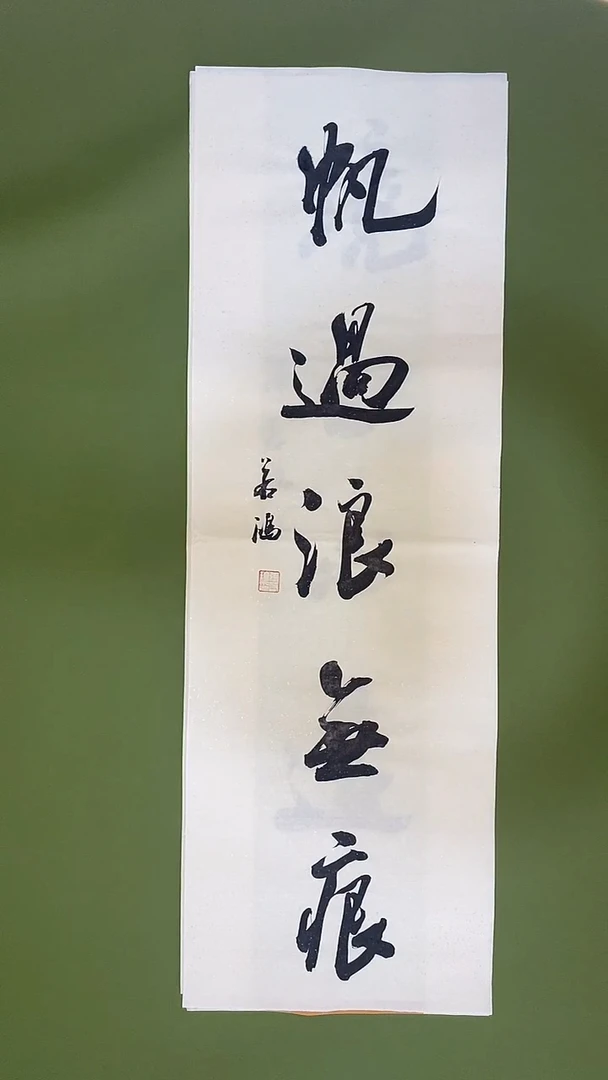 帆過浪無痕
若鴻